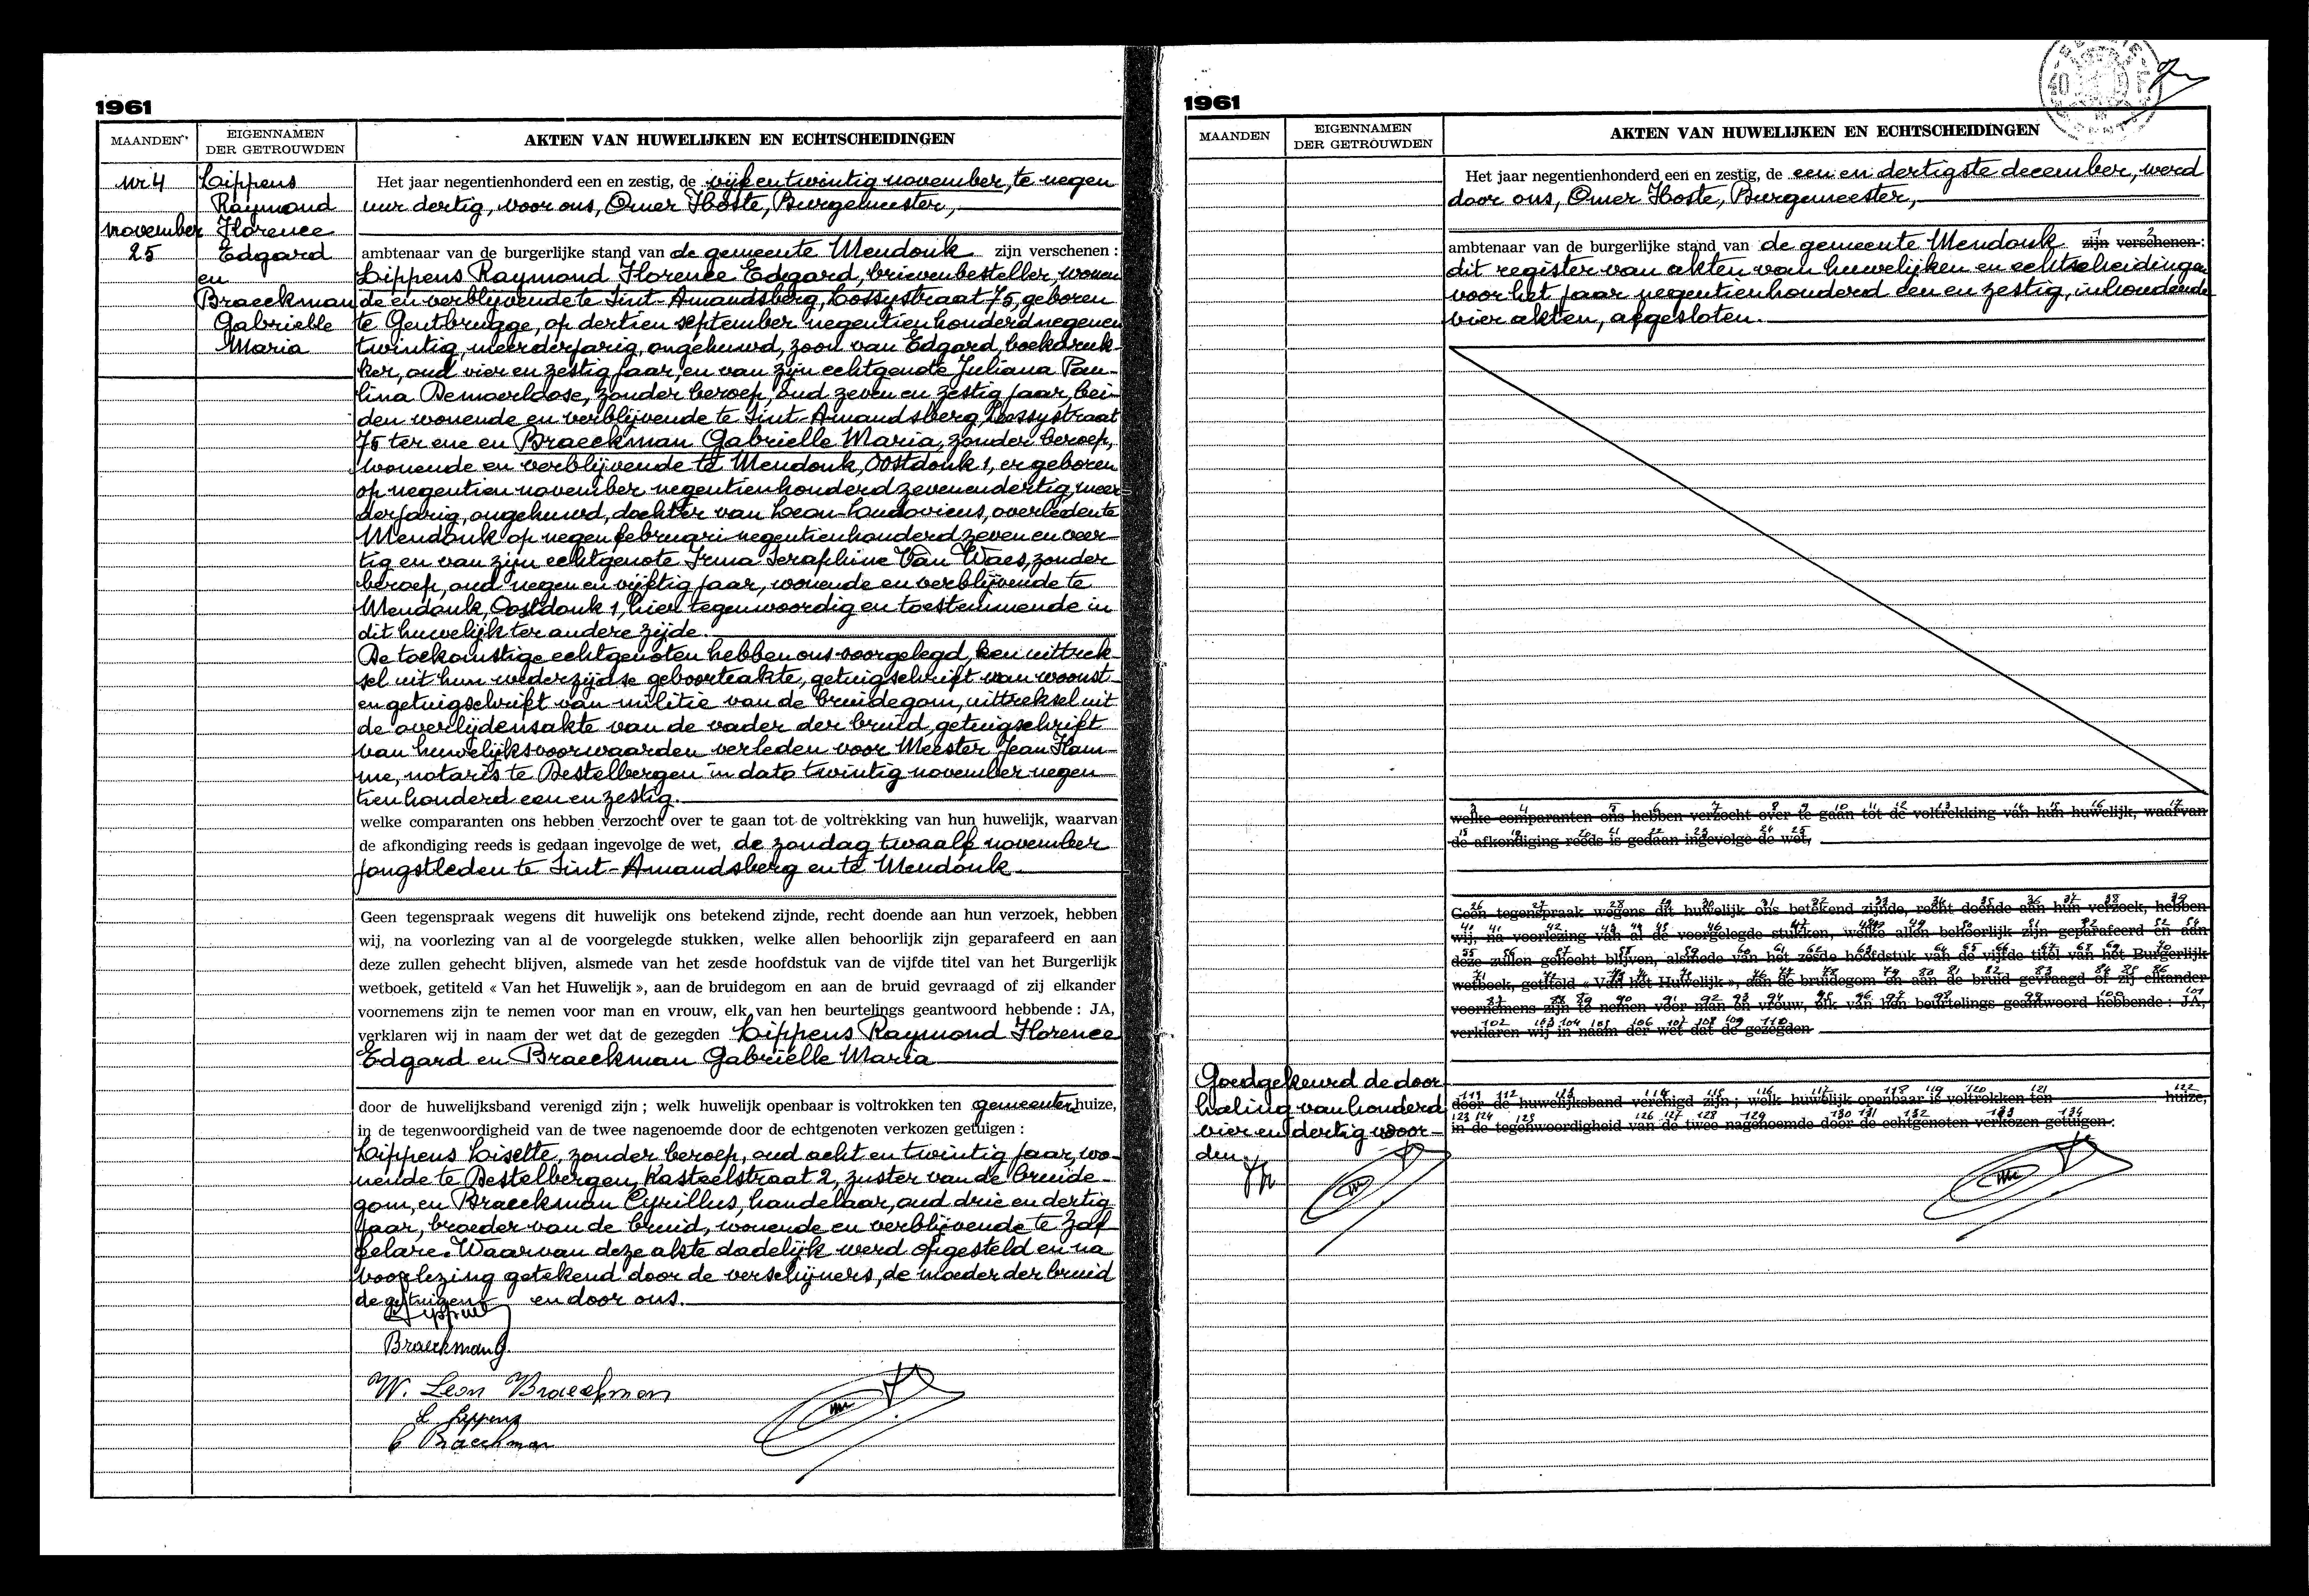 1961
MAANDEN
EIGENNAMEN
DER GETROUWDEN
AKTEN VAN HUWELIJKEN EN ECHTSCHEIDINGEN
nr 4
november
25
Lippens
Raymond
Florence
Edgard
en
Braeckman
Gabrielle
Maria
Het jaar negentienhonderd een en zestig, de vijf en twintig november, te negen
uur dertig, voor ons, Omer Hoste, Burgemeester,
ambtenaar van de burgerlijke stand van de gemeente Mendonk zijn verschenen :
Lippens Raymond Florence Edgard, brievenbesteller, wonen
de en verblijvende te Sint-Amandsberg, Cossystraat 75, geboren
te Gentbrugge, op dertien september negentienhonderd negenen
twintig, meerderjarig, ongehuwd, zoon van Edgard, boekdruk-
ker, oud vier en zestig jaar, en van zijn echtgenote Juliana Pau-
lina Demaerldose, zonder beroep, oud zeven en zestig jaar, bei-
den wonende en verblijvende te Sint-Amandsberg, Cossystraat
75 ter ene en Braeckman Gabrielle Maria, zonder beroep,
wonende en verblijvende te Mendonk, Oostdonk 1, er geboren
op negentien november negentienhonderd zevenendertig, meer
derjarig, ongehuwd, dochter van Leon-Ludovicus, overleden te
Mendonk op negen februari negentienhonderd zeven en veer-
tig en van zijn echtgenote Irma Seraphine Van Waes, zonder
beroep, oud negen en vijftig jaar, wonende en verblijvende te
Mendonk, Oostdonk 1, hier tegenwoordig en toestemmende in
dit huwelijk ter andere zijde.
De toekomstige echtgenoten hebben ons voorgelegd, een uittrek
sel uit hun wederzijdse geboorteakte, getuigschrift van woonst
en getuigschrift van militie van de bruidegom, uittreksel uit
de overlijdensakte van de vader der bruid, getuigschrift
van huwelijksvoorwaarden verleden voor Meester Jean Ham-
me, notaris te Destelbergen in dato twintig november negen
tienhonderd een en zestig.
welke comparanten ons hebben verzocht over te gaan tot de voltrekking van hun huwelijk, waarvan
de afkondiging reeds is gedaan ingevolge de wet, de zondag twaalf november
jongstleden te Sint-Amandsberg en te Mendonk
Geen tegenspraak wegens dit huwelijk ons betekend zijnde, recht doende aan hun verzoek, hebben
wij, na voorlezing van al de voorgelegde stukken, welke allen behoorlijk zijn geparafeerd en aan
deze zullen gehecht blijven, alsmede van het zesde hoofdstuk van de vijfde titel van het Burgerlijk
wetboek, getiteld « Van het Huwelijk », aan de bruidegom en aan de bruid gevraagd of zij elkander
voornemens zijn te nemen voor man en vrouw, elk van hen beurtelings geantwoord hebbende : JA,
verklaren wij in naam der wet dat de gezegden Lippens Raymond Florence
Edgard en Braeckman Gabrielle Maria
door de huwelijksband verenigd zijn ; welk huwelijk openbaar is voltrokken ten gemeentenhuize,
in de tegenwoordigheid van de twee nagenoemde door de echtgenoten verkozen getuigen :
Lippens Lisette, zonder beroep, oud acht en twintig jaar, wo-
nende te Destelbergen, Kasteelstraat 2, zuster van de bruide-
gom, en Braeckman Cyrillus, handelaar, oud drie en dertig
jaar, broeder van de bruid, wonende en verblijvende te Zaf
felare. Waarvan deze akte dadelijk werd opgesteld en na
voorlezing getekend door de verschijners, de moeder der bruid
de getuigen en door ons.
Lippens
Braeckman G.
W. Leon Braeckman
L. Lippens
C Braeckman
1961
MAANDEN
EIGENNAMEN
DER GETROUWDEN
AKTEN VAN HUWELIJKEN EN ECHTSCHEIDINGEN
Het jaar negentienhonderd een en zestig, de een en dertigste december, werd
door ons, Omer Hoste, Burgemeester,
ambtenaar van de burgerlijke stand van de gemeente Mendonk zijn verschenen :
dit register van akten van huwelijken en echtscheidingen
voor het jaar negentienhonderd een en zestig, inhoudende
vier akten, afgesloten.
welke comparanten ons hebben verzocht over te gaan tot de voltrekking van hun huwelijk, waarvan
de afkondiging reeds is gedaan ingevolge de wet,
Geen tegenspraak wegens dit huwelijk ons betekend zijnde, recht doende aan hun verzoek, hebben
wij, na voorlezing van al de voorgelegde stukken, welke allen behoorlijk zijn geparafeerd en aan
deze zullen gehecht blijven, alsmede van het zesde hoofdstuk van de vijfde titel van het Burgerlijk
wetboek, getiteld « Van het Huwelijk », aan de bruidegom en aan de bruid gevraagd of zij elkander
voornemens zijn te nemen voor man en vrouw, elk van hen beurtelings geantwoord hebbende : JA,
verklaren wij in naam der wet dat de gezegden
door de huwelijksband verenigd zijn ; welk huwelijk openbaar is voltrokken ten huize,
in de tegenwoordigheid van de twee nagenoemde door de echtgenoten verkozen getuigen :
Goedgekeurd de door
haling van honderd
vier en dertig woor-
den.